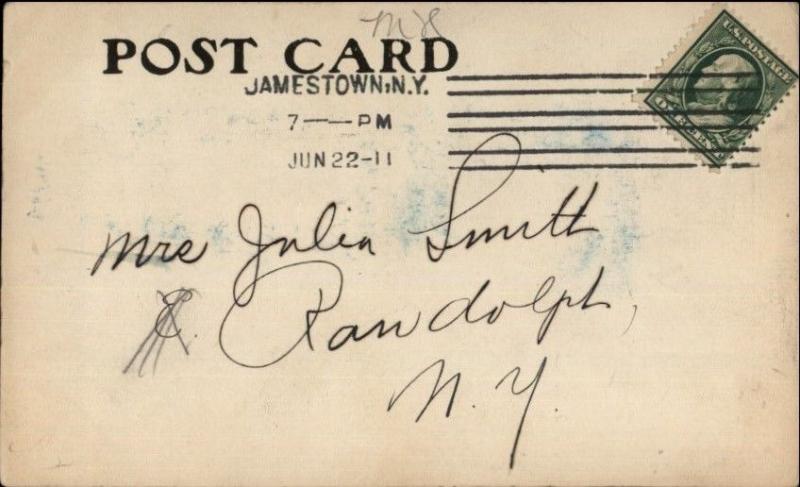 POST CARD
JAMESTOWN, N.Y.
7 — PM
JUN 22-11
U.S. POSTAGE
Mrs Julia Smith
E. Randolph,
N. Y.